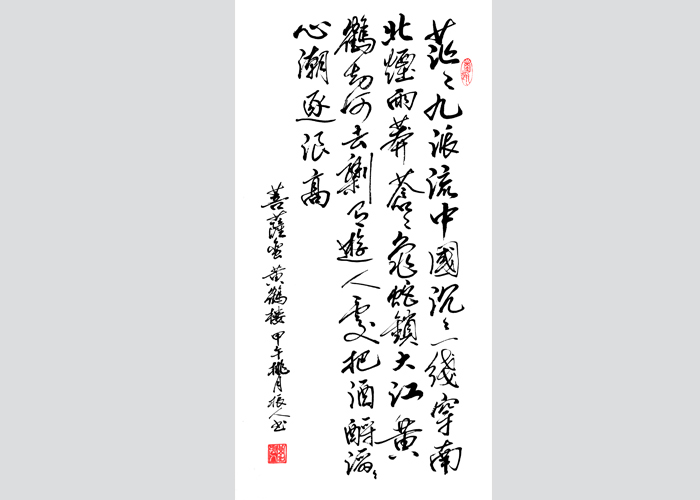 茫々九派流中國沉々一綫穿南
北煙雨莽蒼々龜蛇鎖大江黄
鶴知何去剩有遊人處把酒酹滔々
心潮逐浪高
菩薩蛮黄鶴楼甲午桃月振人书